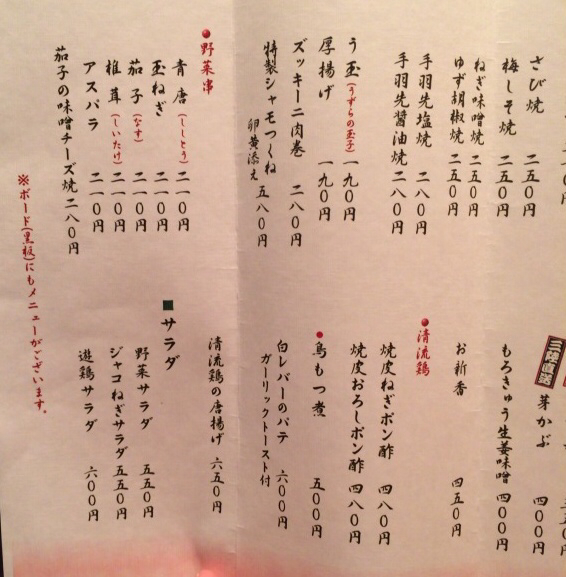 さび焼 二五〇円
梅しそ焼 二五〇円
ねぎ味噌焼 二五〇円
ゆず胡椒焼 二五〇円
手羽先塩焼 二八〇円
手羽先醤油焼 二八〇円
う玉(うずらの玉子) 一九〇円
厚揚げ 一九〇円
ズッキーニ肉巻 二八〇円
特製シャモつくね
卵黄添え 五八〇円
●野菜串
青唐(ししとう) 二一〇円
玉ねぎ 二一〇円
茄子(なす) 二一〇円
椎茸(しいたけ) 二一〇円
アスパラ 二一〇円
茄子の味噌チーズ焼 二八〇円
三陸直送
芽かぶ 四〇〇円
もろきゅう生姜味噌 四〇〇円
お新香 四五〇円
●清流鶏
焼皮ねぎポン酢 四八〇円
焼皮おろしポン酢 四八〇円
●鳥もつ煮 五〇〇円
白レバーのパテ 六〇〇円
ガーリックトースト付
清流鶏の唐揚げ 六五〇円
■サラダ
野菜サラダ 五五〇円
ジャコねぎサラダ 五五〇円
遊鶏サラダ 六〇〇円
※ボード(黒板)にもメニューがございます。